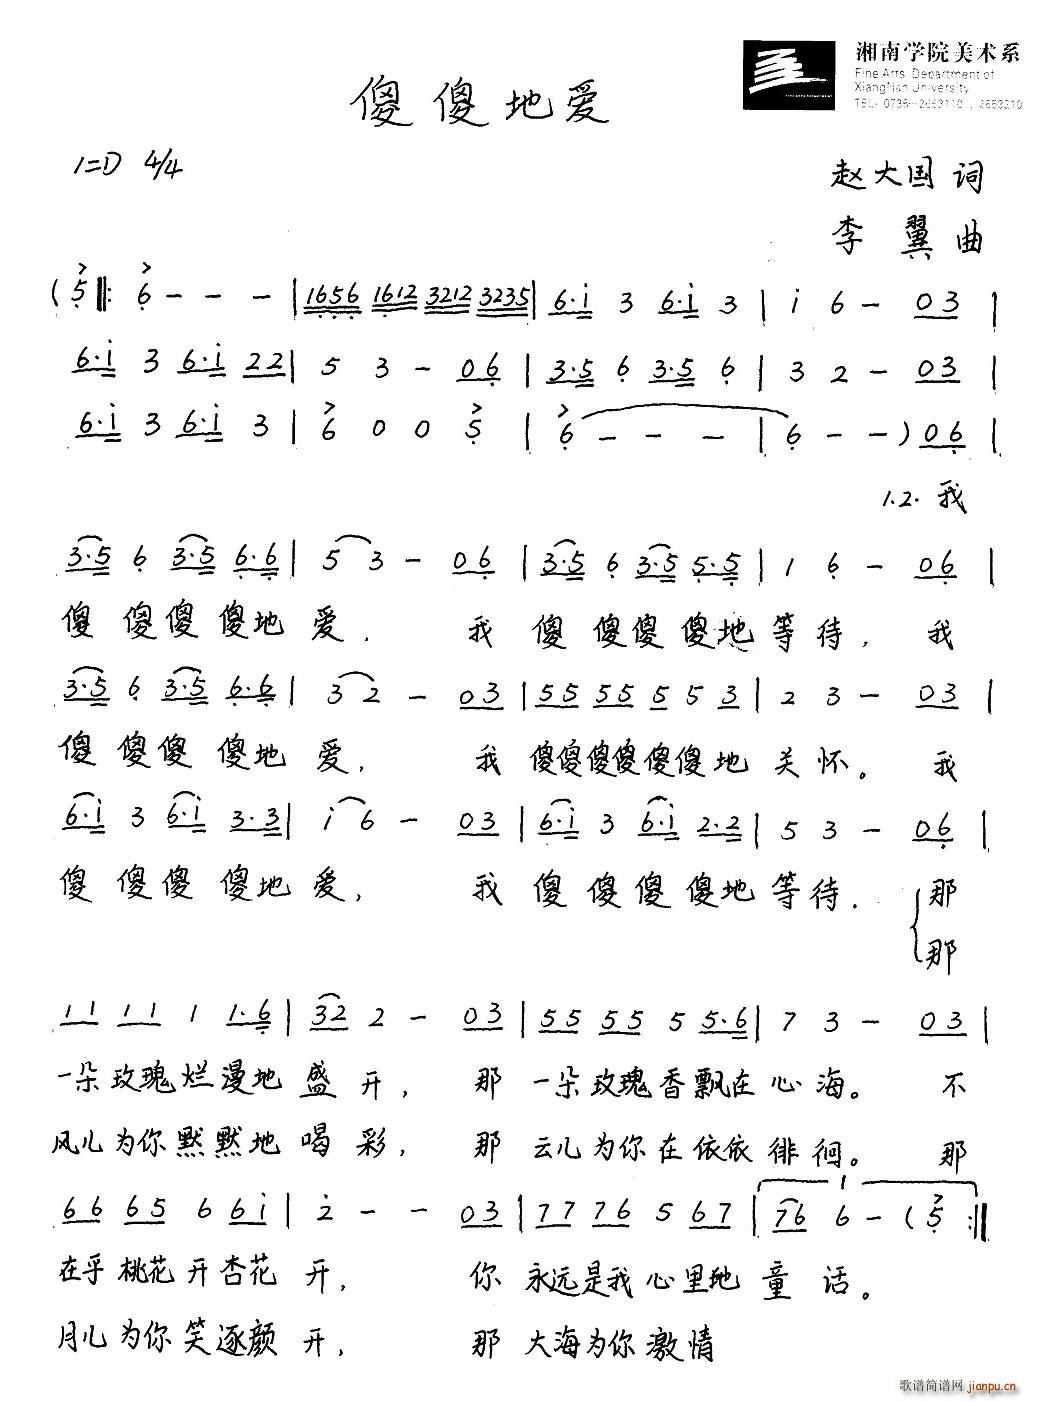 湘南学院美术系
Fine Arts Department of
XiangNan University
TEL: 0735-2653110 , 2653210
傻傻地爱
1=D 4/4
赵大国 词
李翼 曲
( 5 ‖: 6 - - - | 1656 1612 3212 3235 | 6·i 3 6·i 3 | i 6 - 03 |
6·i 3 6·i 22 | 5 3 - 06 | 3·5 6 3·5 6 | 3 2 - 03 |
6·i 3 6·i 3 | 6 0 0 5 | 6 - - - | 6 - - ) 06 |
1.2. 我
3·5 6 3·5 6·6 | 5 3 - 06 | 3·5 6 3·5 5·5 | 1 6 - 06 |
傻 傻傻 傻地 爱. 我 傻 傻傻 傻地 等待, 我
3·5 6 3·5 6·6 | 3 2 - 03 | 55 55 5 5 3 | 2 3 - 03 |
傻 傻傻 傻地 爱, 我 傻傻傻傻傻傻地 关怀。 我
6·i 3 6·i 3·3 | i 6 - 03 | 6·i 3 6·i 2·2 | 5 3 - 06 |
傻 傻傻 傻地 爱, 我 傻 傻傻 傻地 等待. 那
那
11 11 1 1·6 | 32 2 - 03 | 55 55 5 5·6 | 7 3 - 03 |
一朵玫瑰烂漫地 盛开, 那 一朵玫瑰香飘在心海。 不
风儿为你默默地 喝彩, 那 云儿为你在依依徘徊。 那
66 65 6 6i | 2 - - 03 | 77 76 5 67 | 1 76 6 - ( 5 :‖
在乎桃花开杏花 开, 你 永远是我心里地 童话。
月儿为你笑逐颜 开, 那 大海为你激情
歌谱简谱网 jianpu.cn